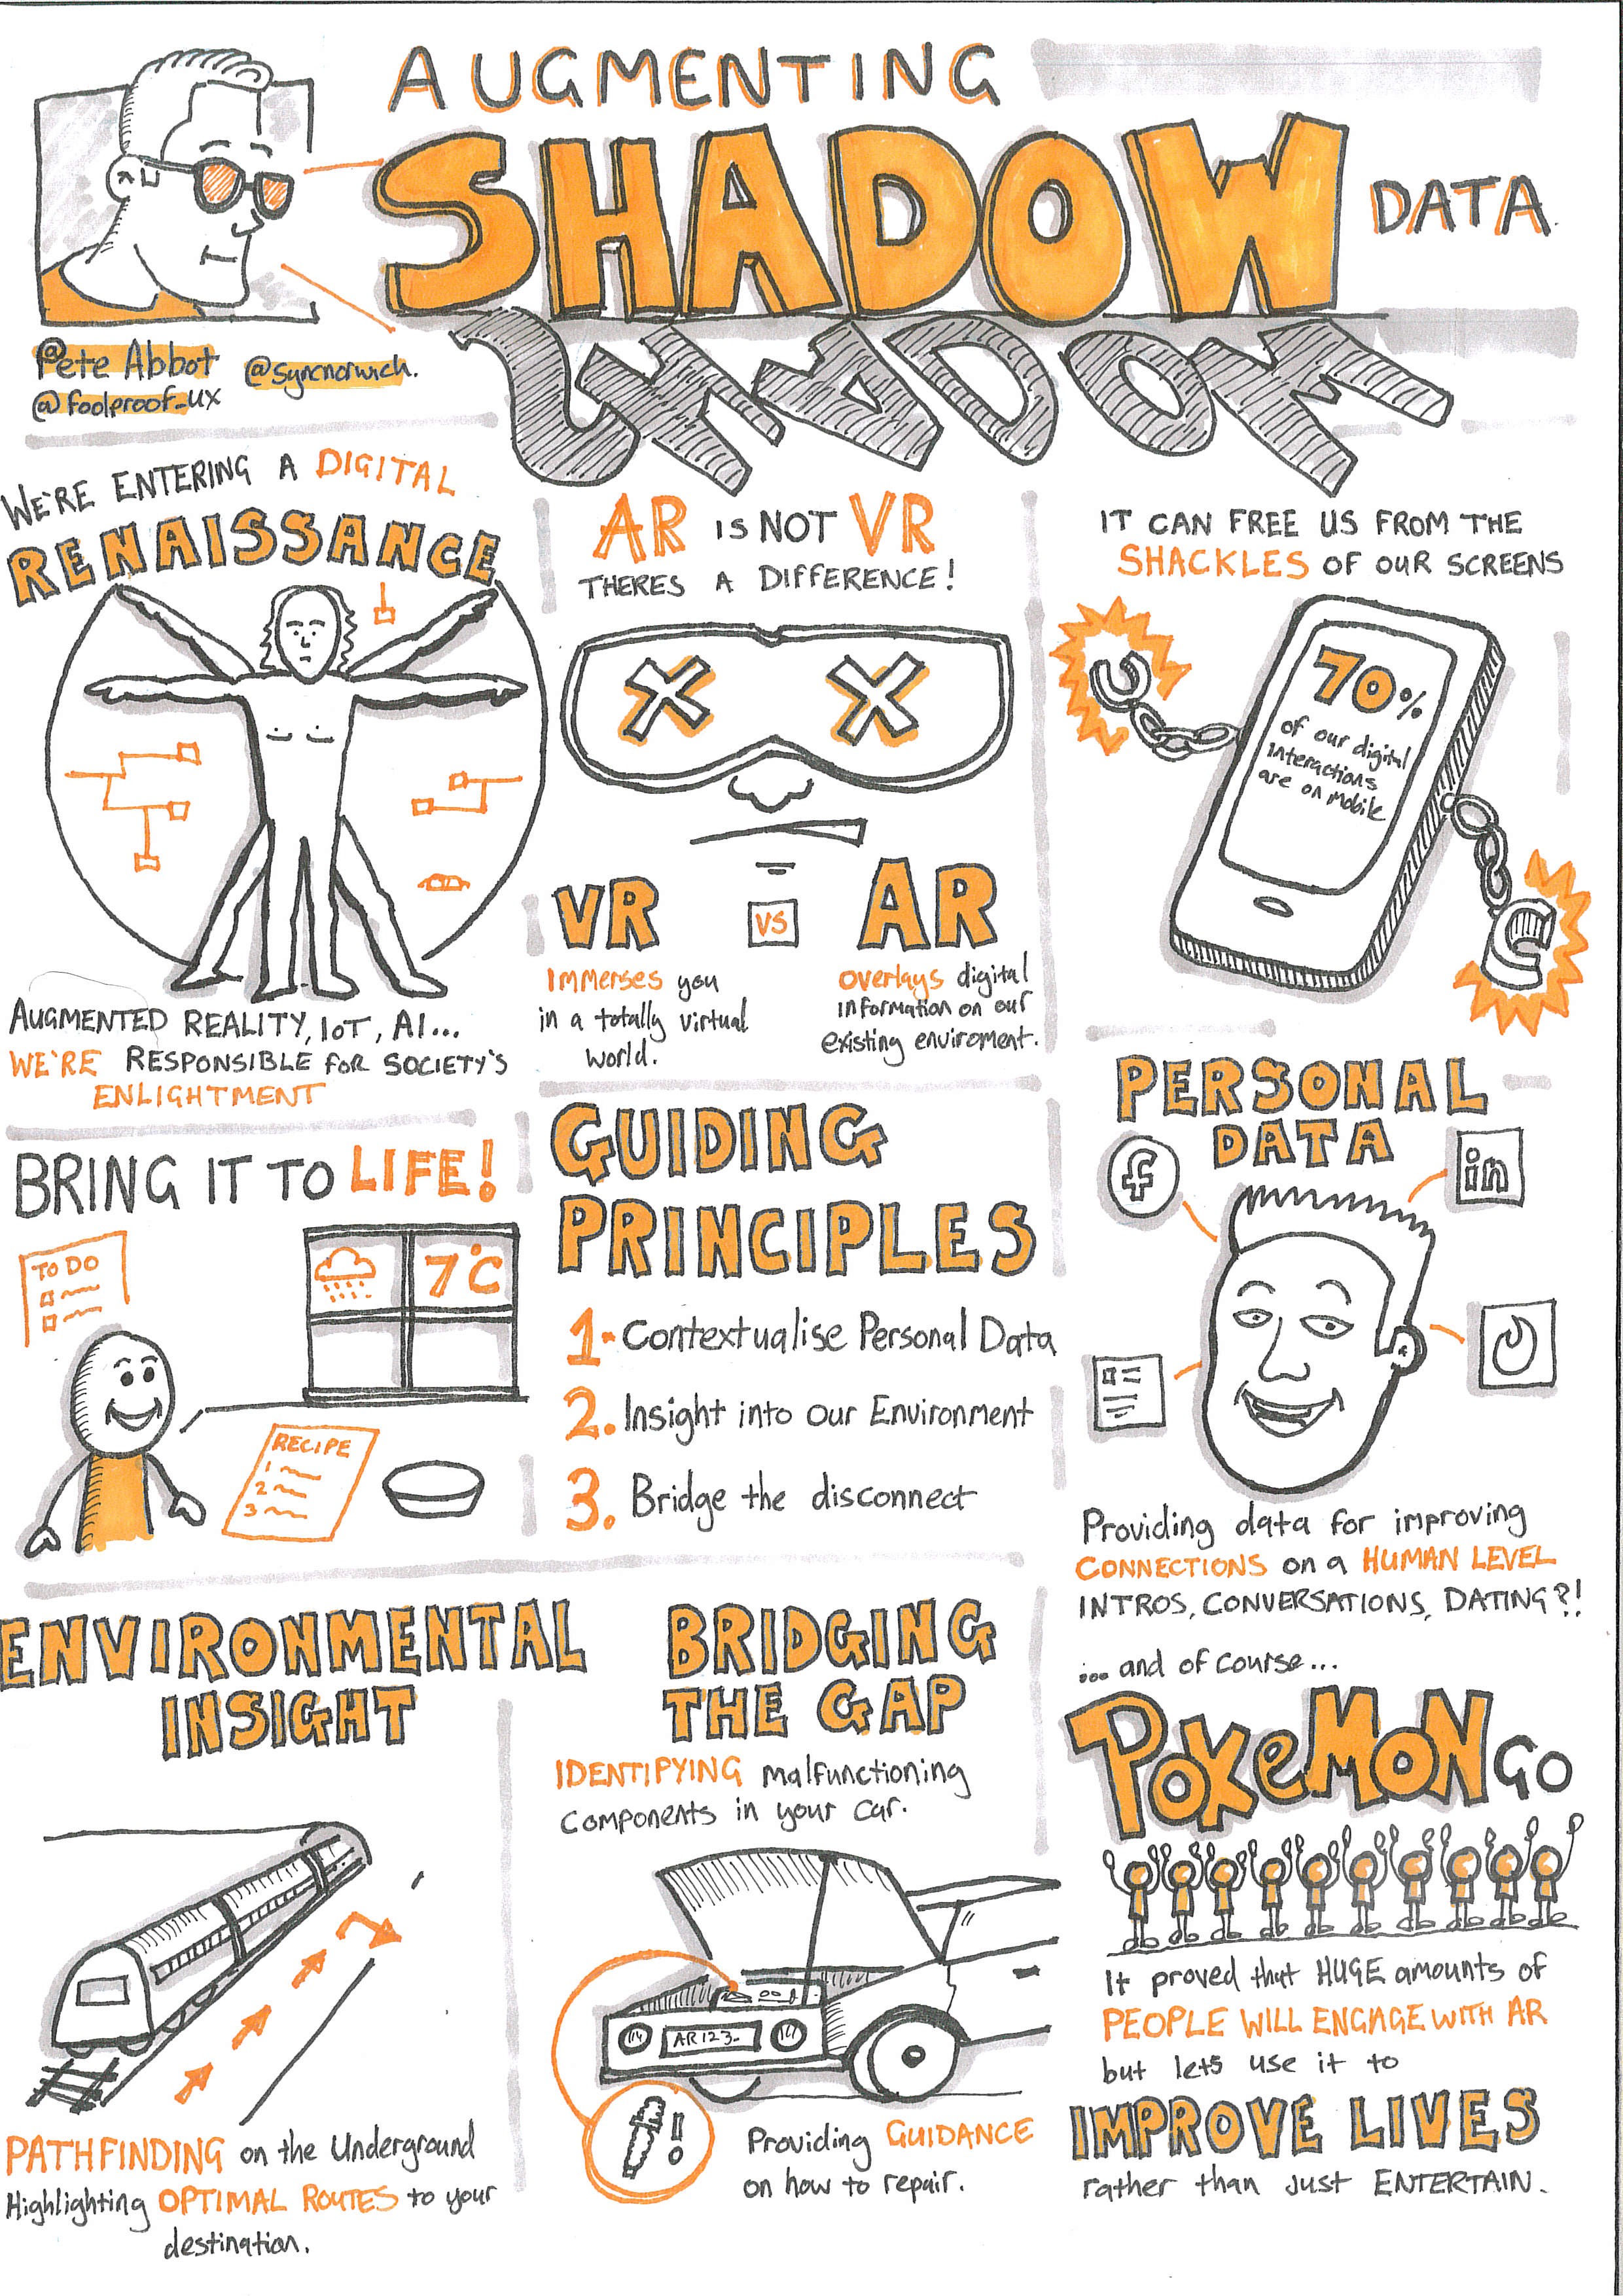 AUGMENTING
SHADOW
DATA.
SHADOW
@
Pete Abbot
@syncnorwich.
@foolproof_ux
WE'RE ENTERING A DIGITAL
RENAISSANCE
AUGMENTED REALITY, IoT, AI...
WE'RE RESPONSIBLE FOR SOCIETY'S
ENLIGHTMENT
AR IS NOT VR
THERES A DIFFERENCE!
VR VS AR
Immerses you
in a totally virtual
world.
overlays digital
information on our
existing enviroment.
IT CAN FREE US FROM THE
SHACKLES OF OUR SCREENS
70%
of our digital
interactions
are on mobile
BRING IT TO LIFE!
TO DO
7°C
RECIPE
1
2
3
GUIDING
PRINCIPLES
1- Contextualise Personal Data
2. Insight into our Environment
3. Bridge the disconnect
PERSONAL
DATA
f
in
Providing data for improving
CONNECTIONS on a HUMAN LEVEL
INTROS, CONVERSATIONS, DATING?!
ENVIRONMENTAL
INSIGHT
PATHFINDING on the Underground
Highlighting OPTIMAL ROUTES to your
destination.
BRIDGING
THE GAP
IDENTIFYING malfunctioning
components in your car.
AR123-
!
Providing GUIDANCE
on how to repair.
... and of course...
POKeMON GO
It proved that HUGE amounts of
PEOPLE WILL ENGAGE WITH AR
but lets use it to
IMPROVE LIVES
rather than just ENTERTAIN.